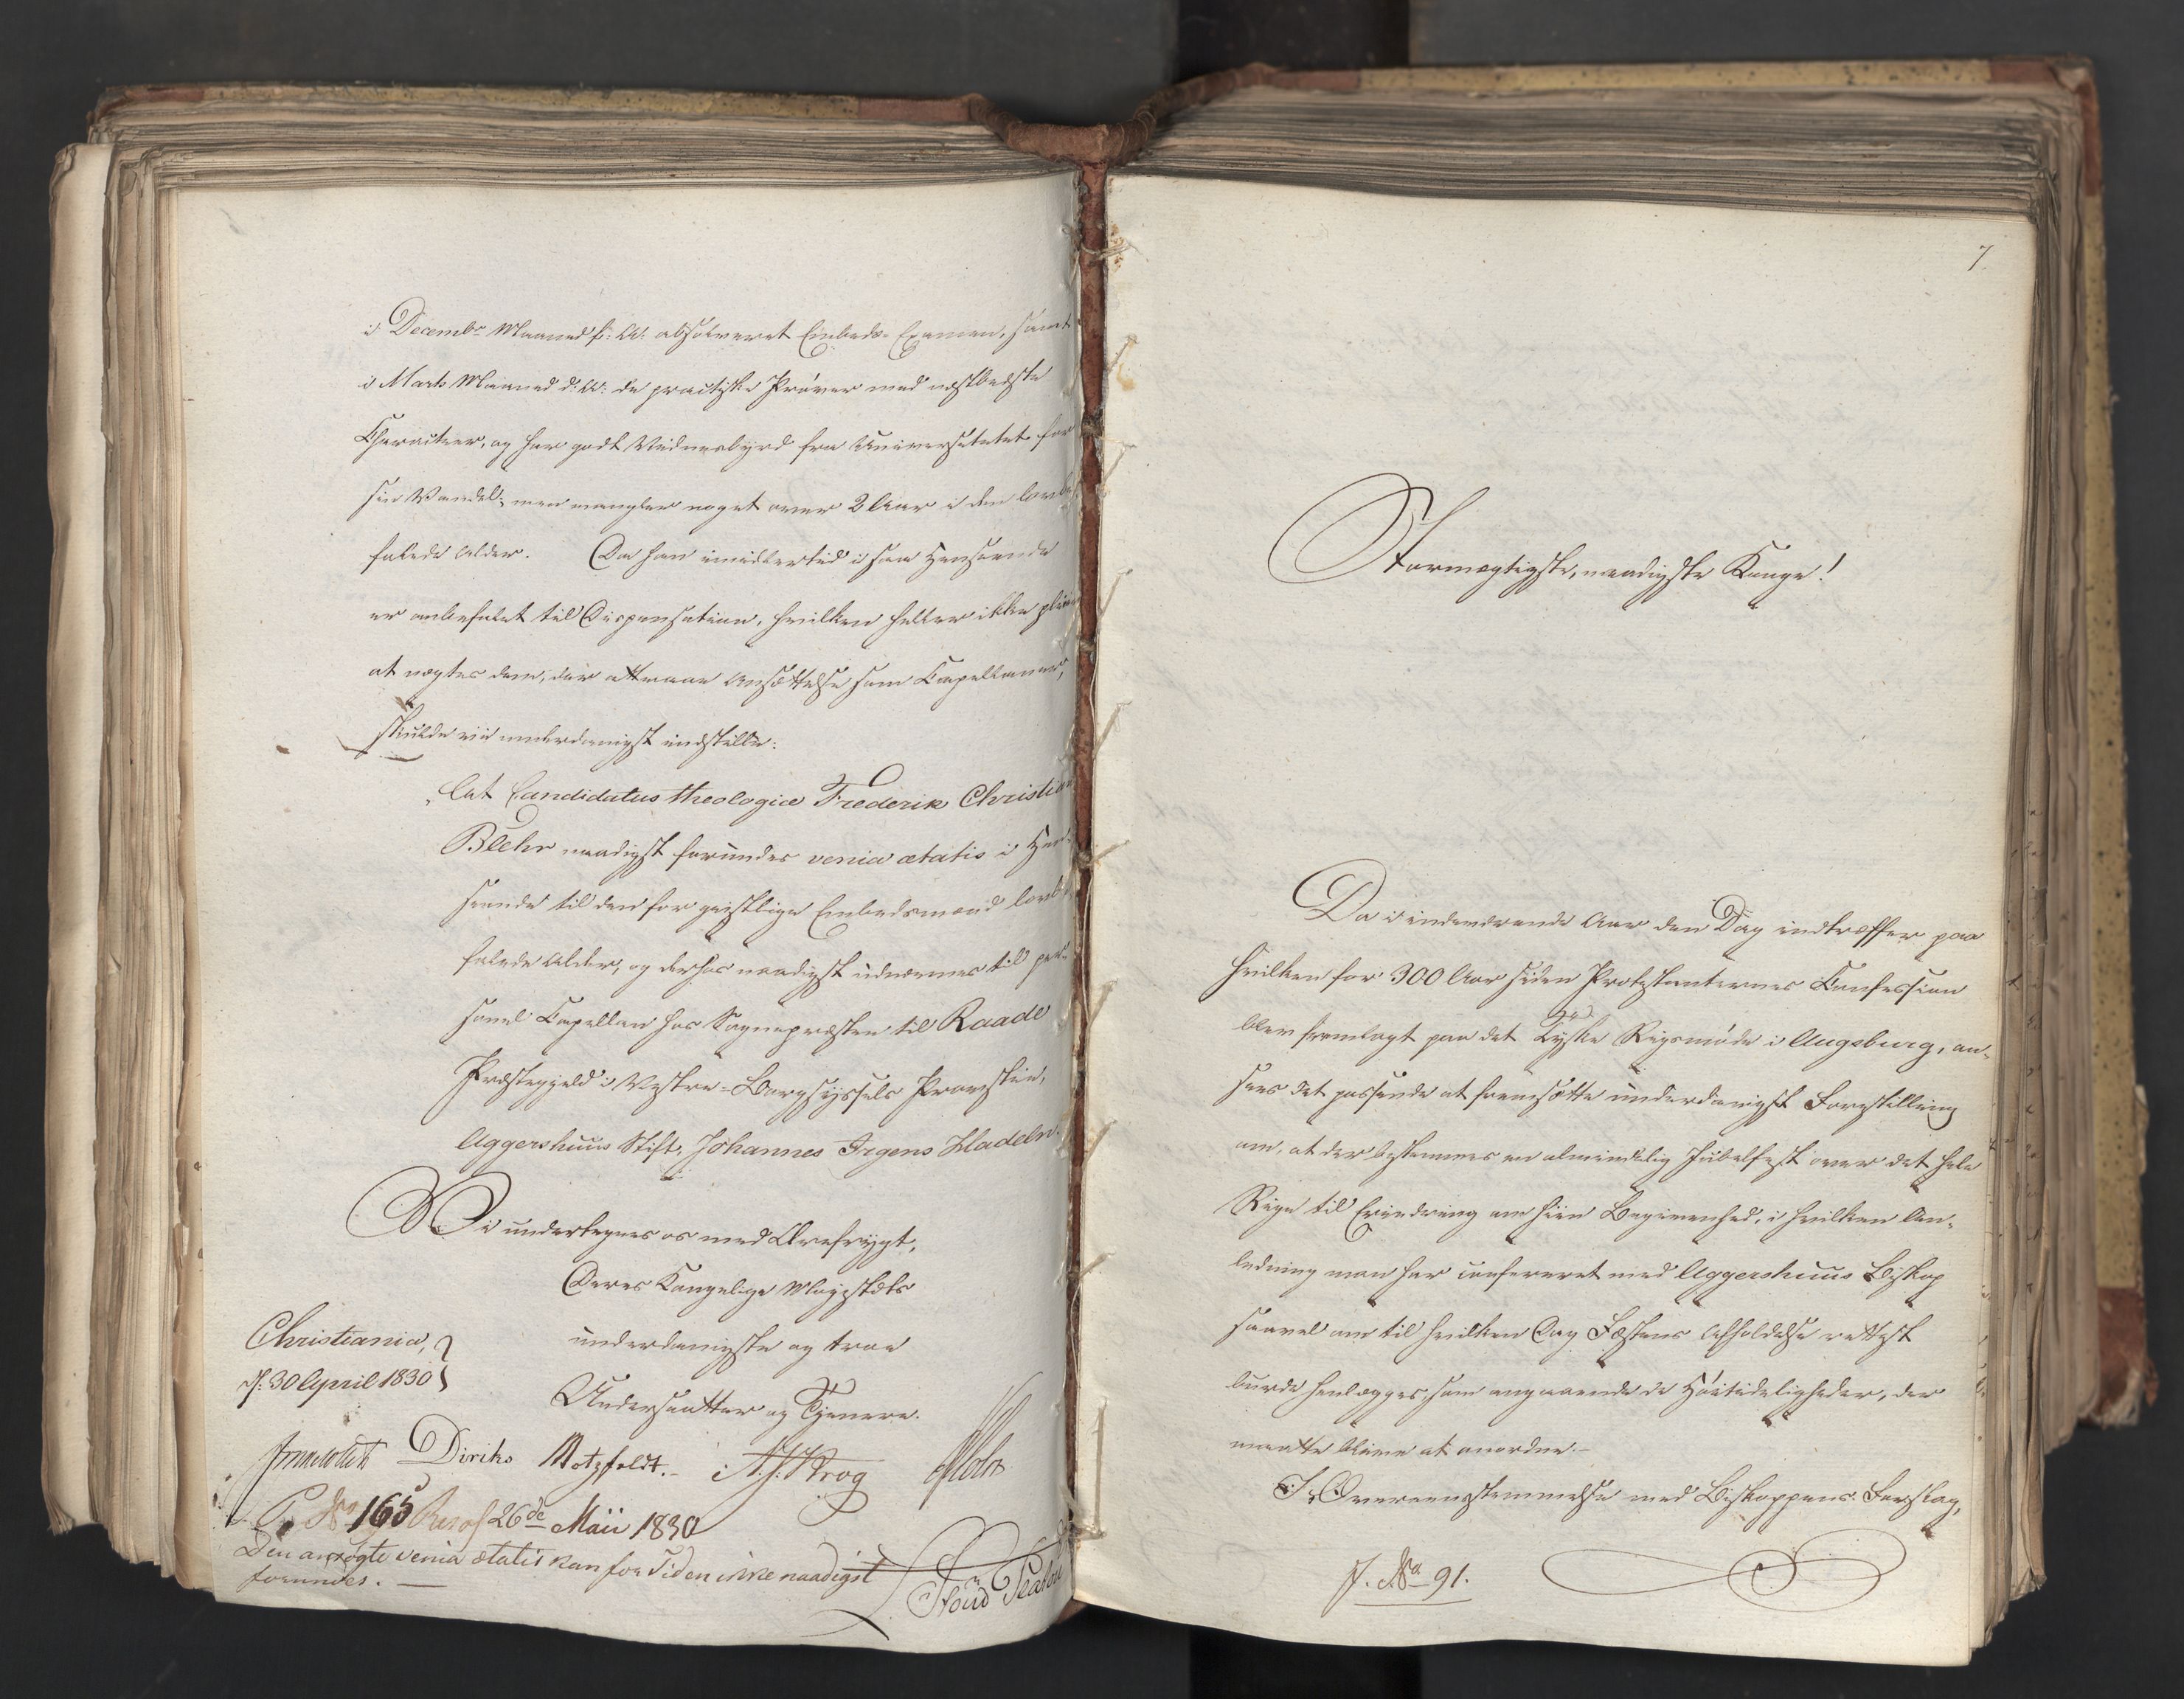 i Decembr Maaned f: A: absolveret Embeds-Examen, samt
i Marts Maaned d: A: de practiske Prøver med næstbedste
Characteer, og har godt Vidnesbyrd fra Universitetet for
sin Vandel; men mangler noget over 2 Aar i den lovbe-
falede Alder. Da han imidlertid i saa Henseende
er anbefalet til Dispensation, hvilken heller ikke pleier
at nægtes dem, der attraae Ansættelse som Capellaner,
skulde vi underdanigst indstille:
"At Candidatus theologiæ Frederik Christian
Blehr naadigst forundes venia ætatis i Hen-
seende til den for geistlige Embedsmænd lovbe-
falede Alder, og derhos naadigst udnævnes til per-
sonel Capellan hos Sognepræsten til Raade
Præstegjeld i Vestre-Borgesyssels Provstie,
Aggershuus Stift, Johannes Irgens Hadeln.
Vi undertegnes os med Ærefrygt,
Deres Kongelige Majestæts
underdanigste og troe
Undersaatter og Tjenere.
Christiania,
d: 30 April 1830
Diriks Motzfeldt. Krog
No 165 Resol 26de Maii 1830
Den ansøgte venia ætatis kan for Tiden ikke naadigst
forundes. —
7
Stormægtigste, naadigste Konge!
Da i indeværende Aar den Dag indtræffer paa
hvilken for 300 Aar siden Protestanternes Confession
blev fremlagt paa det Tydske Rigsmøde i Augsburg, an-
sees det passende at fremsætte underdanigst Forestilling
om, at der bestemmes en almindelig Jubelfest over det hele
Rige til Erindring om hiin Begivenhed, i hvilken An-
ledning man har confereret med Aggershuus Biskop
saavel om til hvilken Dag Festens Afholdelse rettest
burde henlægges, som angaaende de Høitideligheder, der
maatte blive at anordne.—
I Overeensstemmelse med Biskoppens Forslag,
J. No 91.